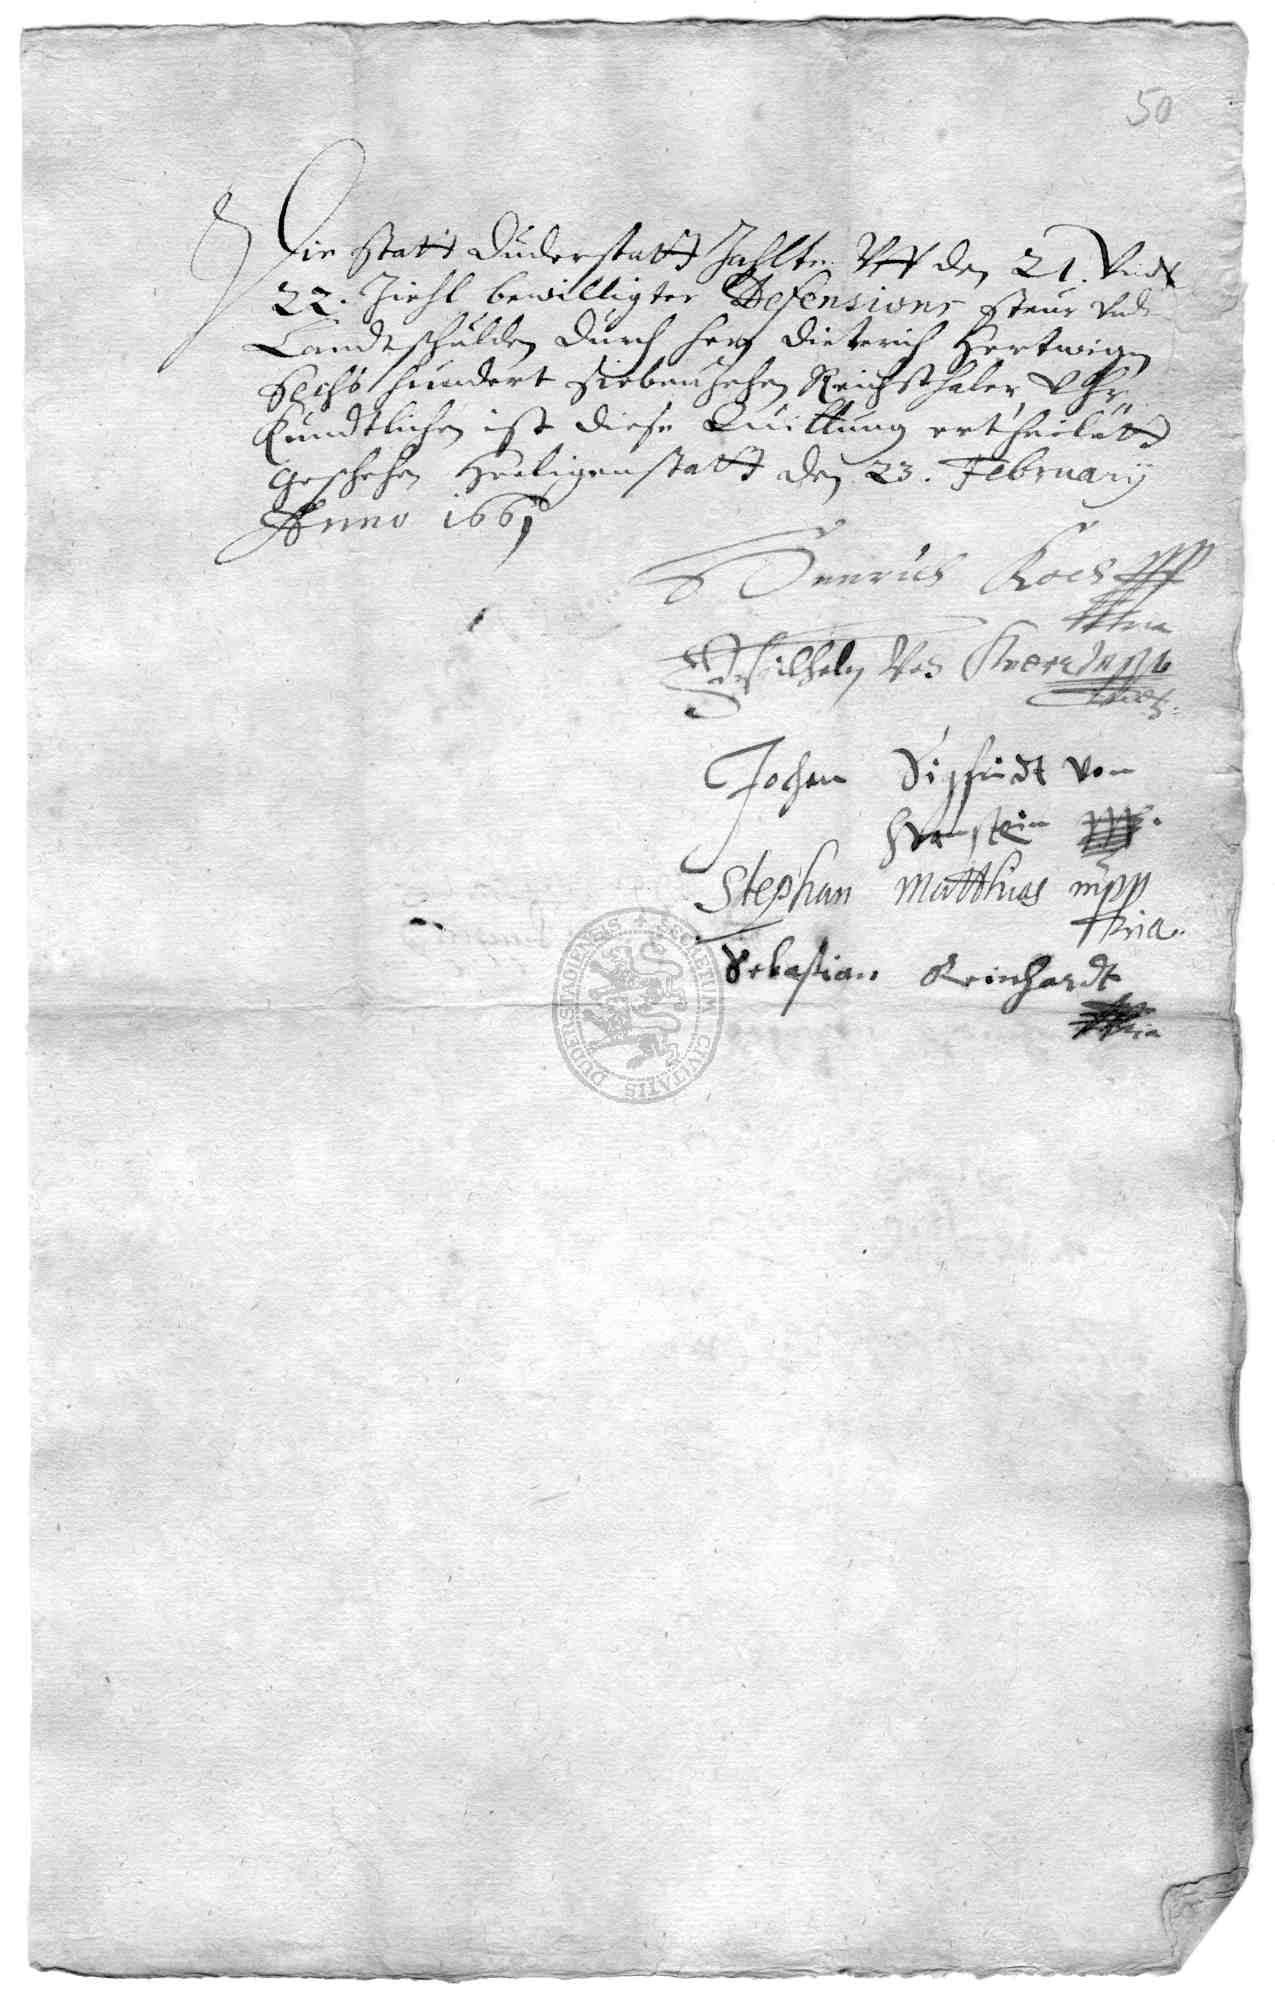 50
Die Statt Duderstatt Zahlte Vff den 21. Vndt
22. Ziehl bewilligter Defensions steur vndt
Landtschulden durch herr Dieterich Hertwign
Sechs hundert siebenzehen Reichsthaler, Uhr
Kundtlichen ist diese Quittung ertheilett
geschehen Heiligenstatt den 23. February
Anno 1661
Henricus Koch mpp
pria
Wilhelm von
Jochen Sigfridt von
Hanstein mpp.
Stephan Matthias mpp
pria.
Sebastian Reinhardt
mppria
SECRETUM CIVITATIS DUDERSTADIENSIS